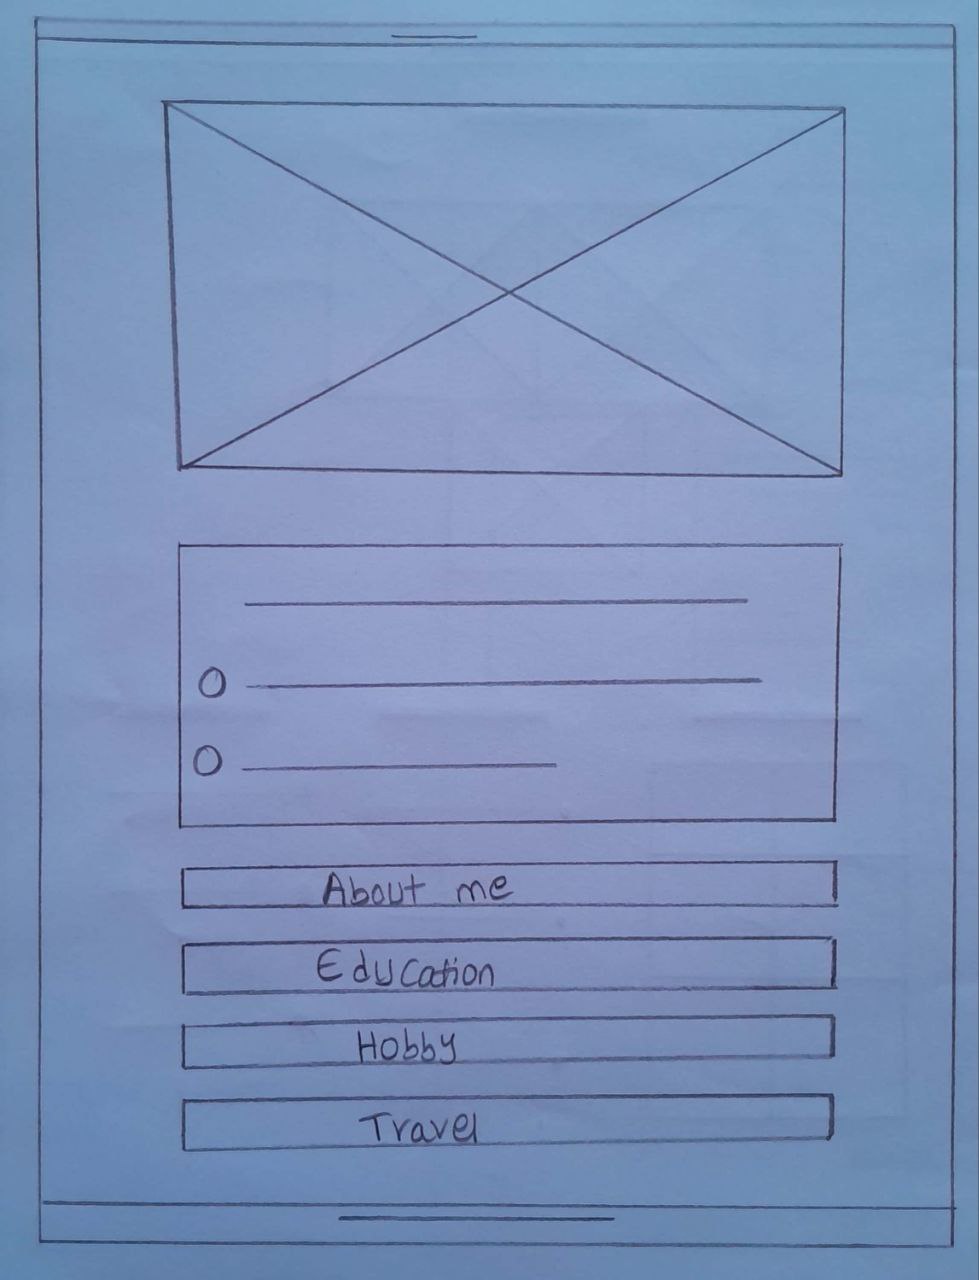 About me
Education
Hobby
Travel